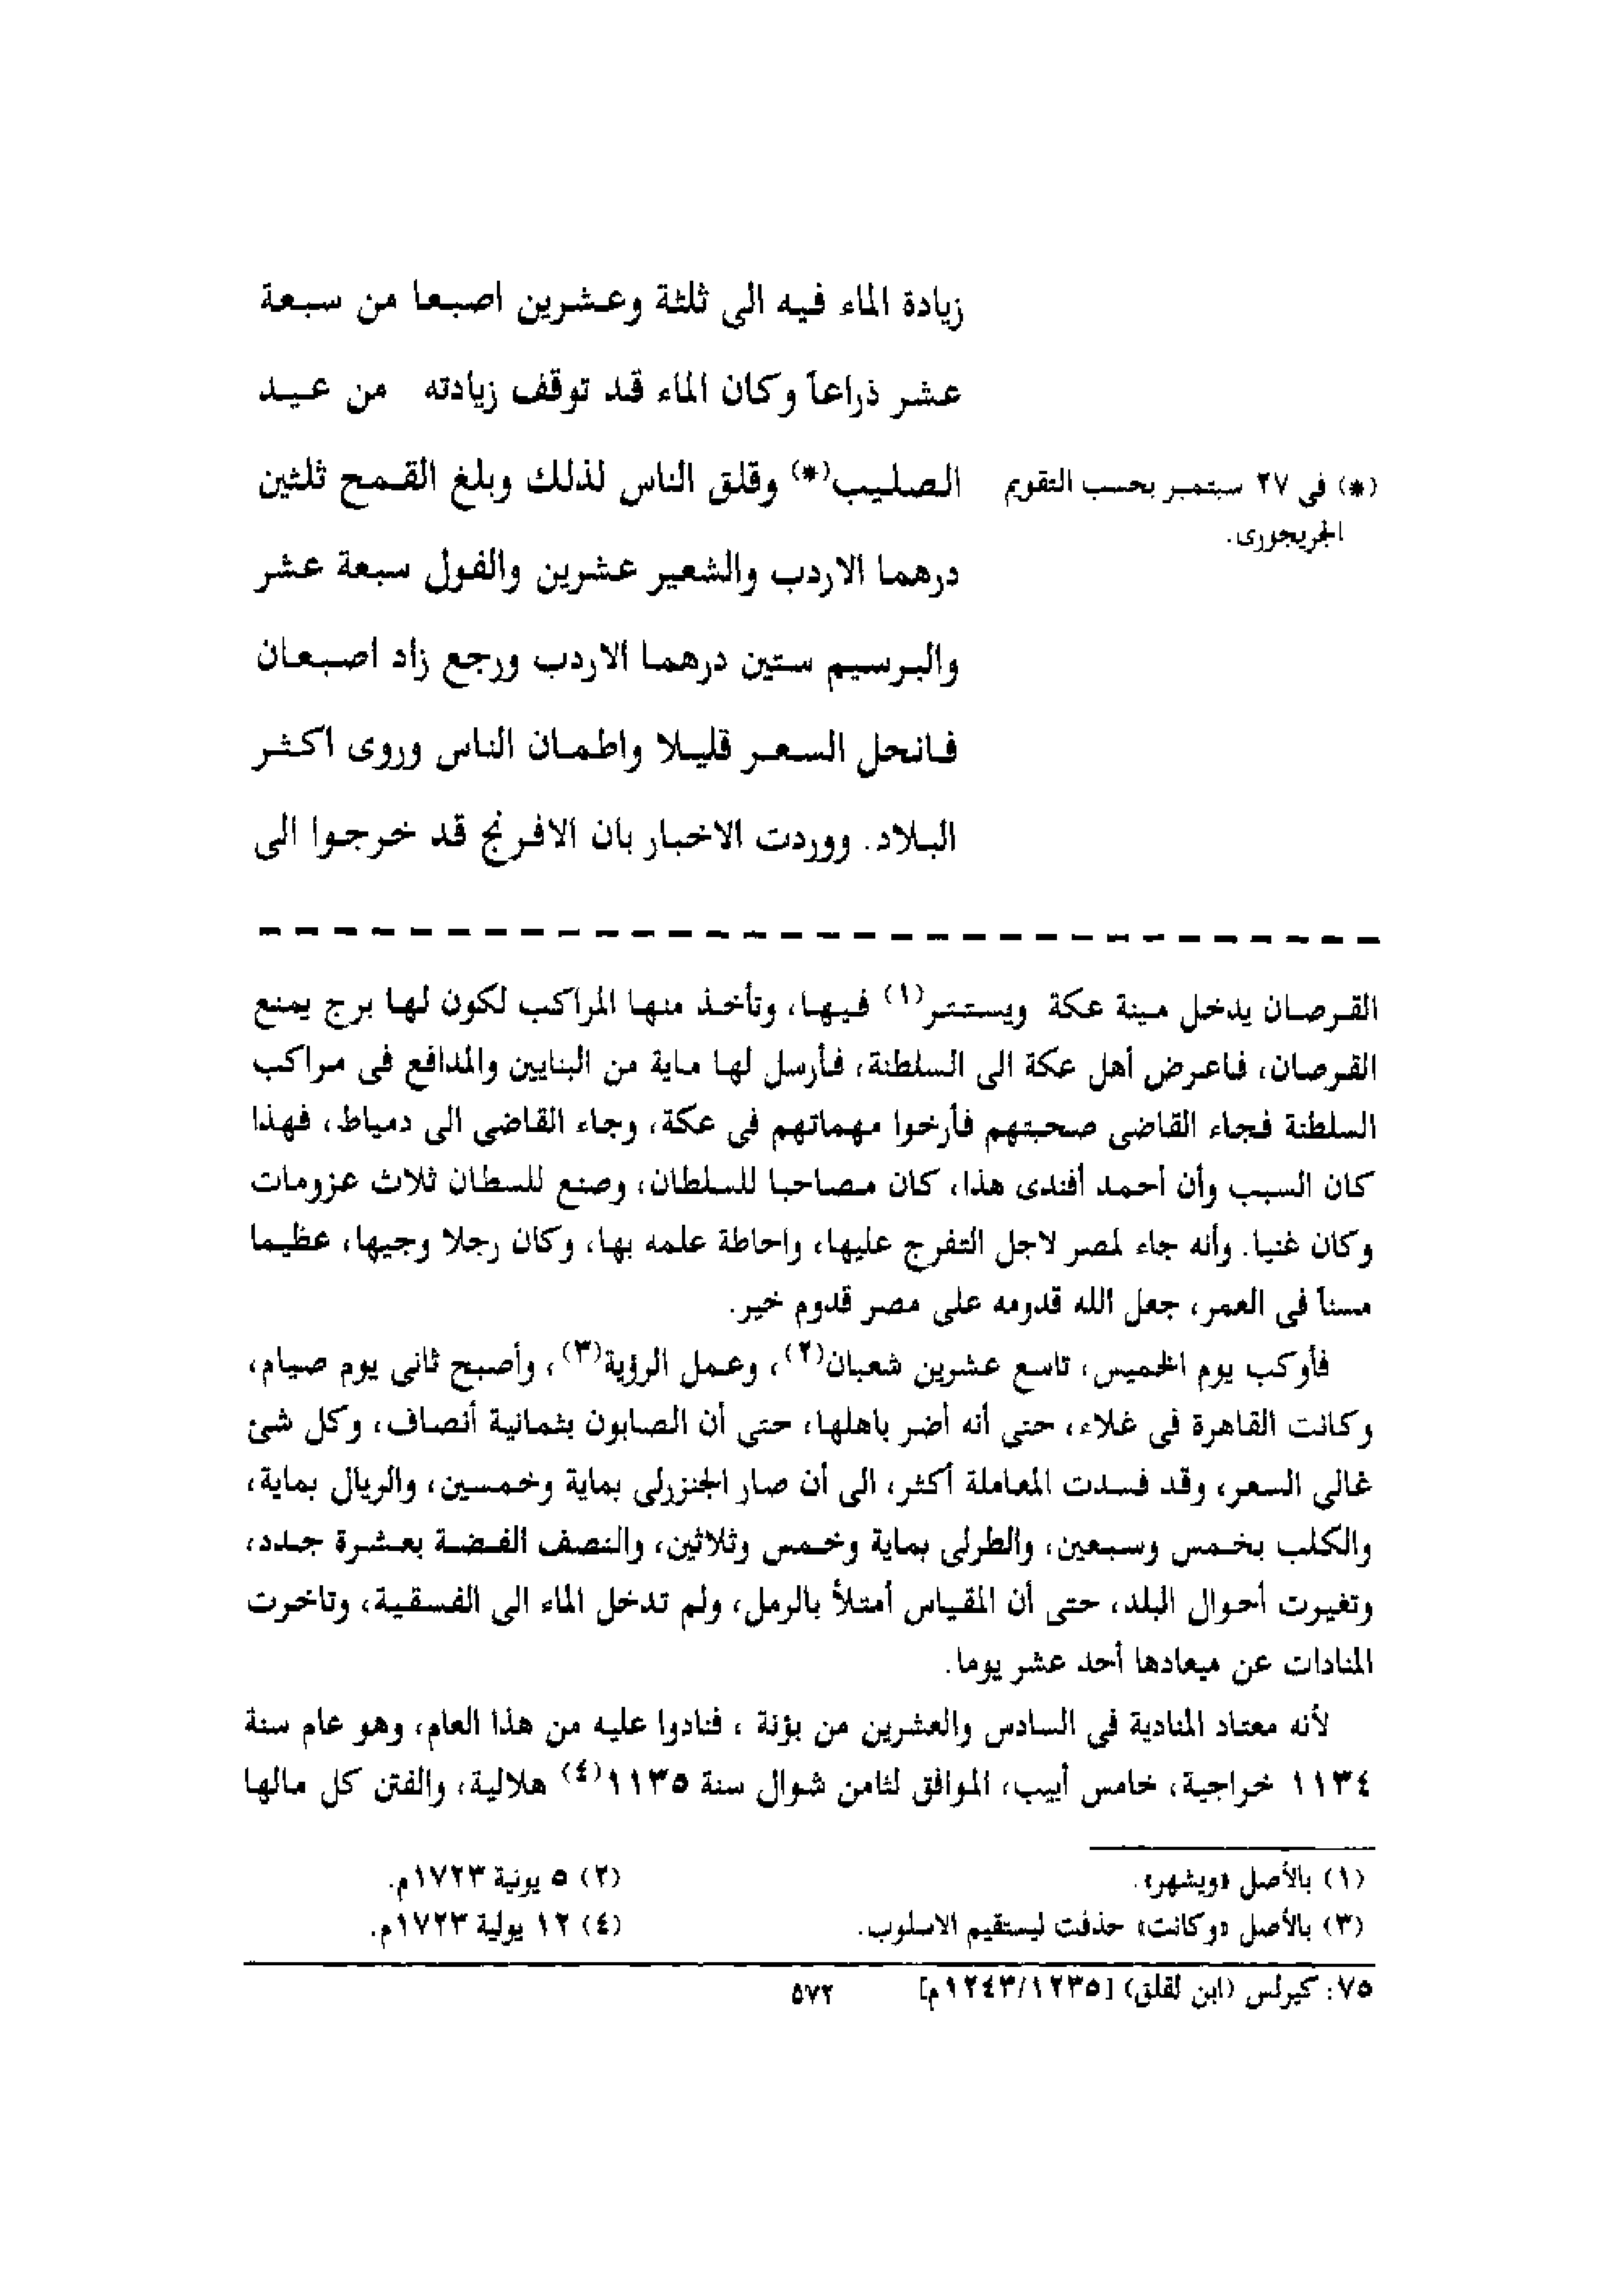 زيادة الماء فيه الى ثلثة وعشرين اصبعا من سبعة
عشر ذراعاً وكان الماء قد توقف زيادته من عيد
الصليب(*) وقلق الناس لذلك وبلغ القمح ثلثين
(*) فى ٢٧ سبتمبر بحسب التقويم
الجريجورى.
درهما الاردب والشعير عشرين والفول سبعة عشر
والبرسيم ستين درهما الاردب ورجع زاد اصبعان
فانحل السعر قليلا واطمان الناس وروى اكثر
البلاد. ووردت الاخبار بان الافرنج قد خرجوا الى
القرصان يدخل مينة عكة ويستتر(١) فيها، وتأخذ منها المراكب لكون لها برج يمنع
القرصان، فاعرض أهل عكة الى السلطنة، فأرسل لها ماية من البنايين والمدافع فى مراكب
السلطنة فجاء القاضى صحبتهم فأرخوا مهماتهم فى عكة، وجاء القاضى الى دمياط، فهذا
كان السبب وأن أحمد أفندى هذا، كان مصاحبا للسلطان، وصنع للسطان ثلاث عزومات
وكان غنيا. وأنه جاء لمصر لاجل التفرج عليها، واحاطة علمه بها، وكان رجلا وجيها، عظيما
مسناً فى العمر، جعل الله قدومه على مصر قدوم خير.
فأوكب يوم الخميس، تاسع عشرين شعبان(٢)، وعمل الرؤية(٣)، وأصبح ثانى يوم صيام،
وكانت القاهرة فى غلاء، حتى أنه أضر باهلها، حتى أن الصابون بثمانية أنصاف، وكل شئ
غالى السعر، وقد فسدت المعاملة أكثر، الى أن صار الجنزرلى بماية وخمسين، والريال بماية،
والكلب بخمس وسبعين، والطرلى بماية وخمس وثلاثين، والنصف الفضة بعشرة جدد،
وتغيرت أحوال البلد، حتى أن المقياس أمتلأ بالرمل، ولم تدخل الماء الى الفسقية، وتاخرت
المنادات عن ميعادها أحد عشر يوما.
لأنه معتاد المنادية فى السادس والعشرين من بؤنة ، فنادوا عليه من هذا العام، وهو عام سنة
١١٣٤ خراجية، خامس أبيب، الموافق لثامن شوال سنة ١١٣٥(٤) هلالية، والفتن كل مالها
(١) بالأصل «ويشهر».
(٢) ٥ يونية ١٧٢٣م.
(٣) بالأصل «وكانت» حذفت ليستقيم الاسلوب.
(٤) ١٢ يولية ١٧٢٣م.
٧٥: كيرلس (ابن لقلق) [١٢٤٣/١٢٣٥م]
٥٧٢